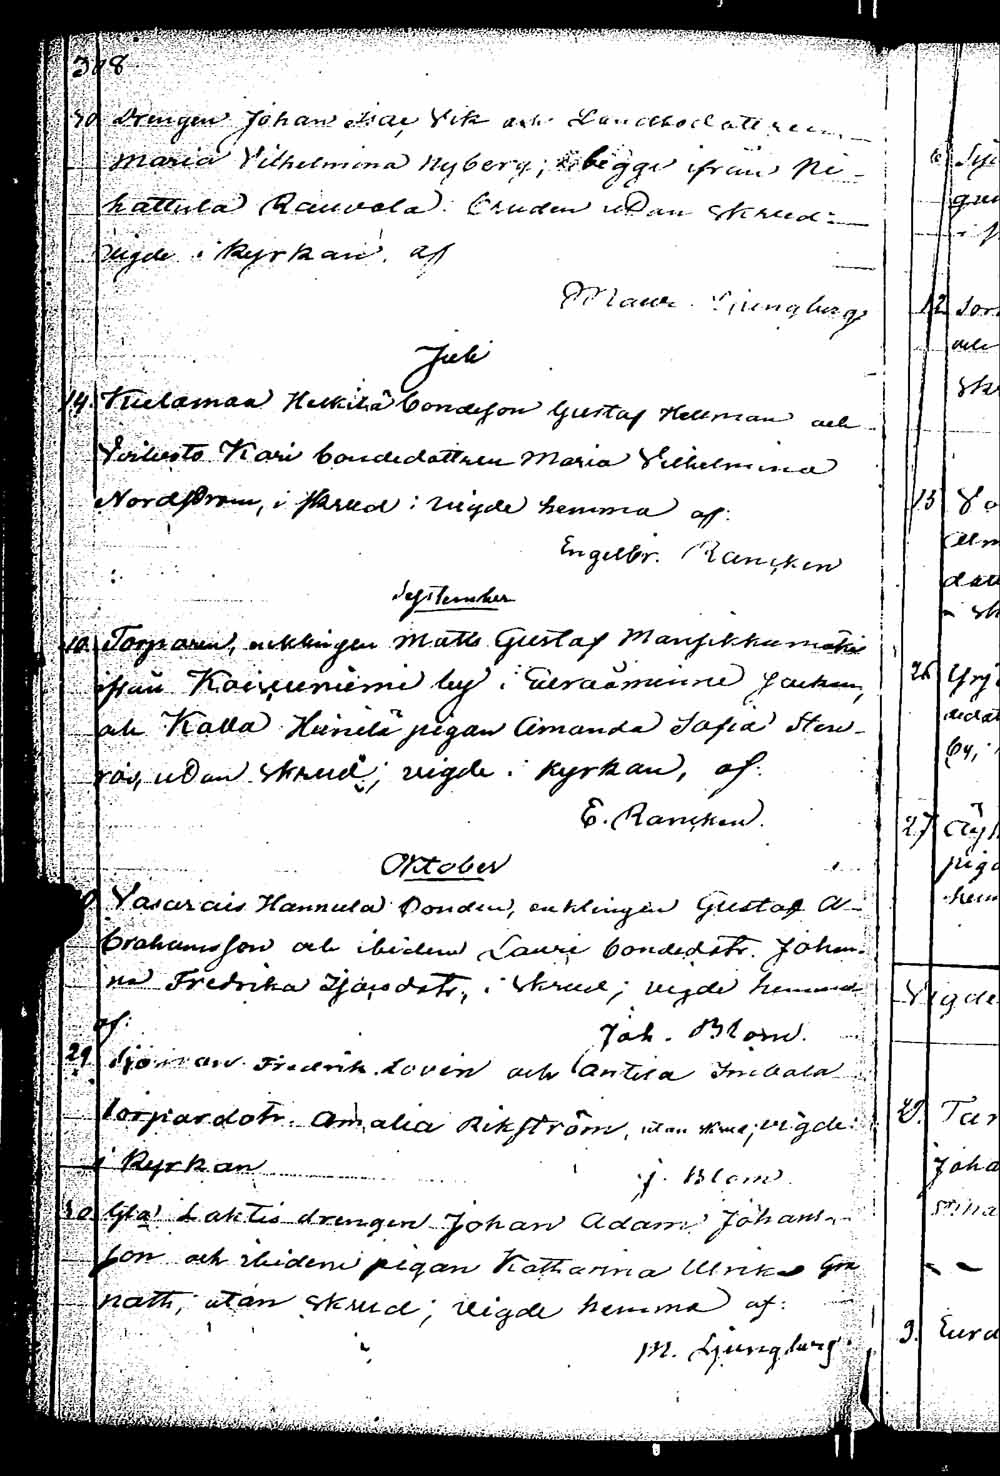 308
30 Drengen Johan Isac Vik och Landbodottren
Maria Vilhelmina Nyberg; begge ifrån Ni-
hattula Rauvola. Bruden utan skrud:
vigde i kyrkan, af
Maur. Ljungberg
Juli
14. Kuolamaa Heikkilä bondeson Gustaf Hellman och
Kari bondedottren Maria Vilhelmina
Nordström, i skrud: vigde hemma af:
Engelbr. Rancken
September
10. Torparen, enklingen Matts Gustaf Mansikkamäki
ifrån by i Euraåminne socken,
och Kalla Heinilä pigan Amanda Sofia Sten-
ros, utan skrud; vigde i kyrkan, af:
E. Rancken.
Oktober
Vasarais Hannula bonden, enklingen Gustaf A-
brahamsson och ibidem Lauri bondedotr. Johan-
na Fredrika Isaksdotr., i skrud; vigde hemma
af: Joh. Blom.
29. Sjöman Fredrik Lovén och Antila
torpardotr. Amalia Rikström, utan skrud; vigde
i kyrkan J. Blom.
30. Laktis drengen Johan Adam Johans-
son och ibidem pigan Katharina Ulrika Gra
nath, utan skrud; vigde hemma af:
M. Ljungberg.
6
12
och
13
26
by, i
27
piga
hem
Vigde
20.
Joha
stina
9. Eura